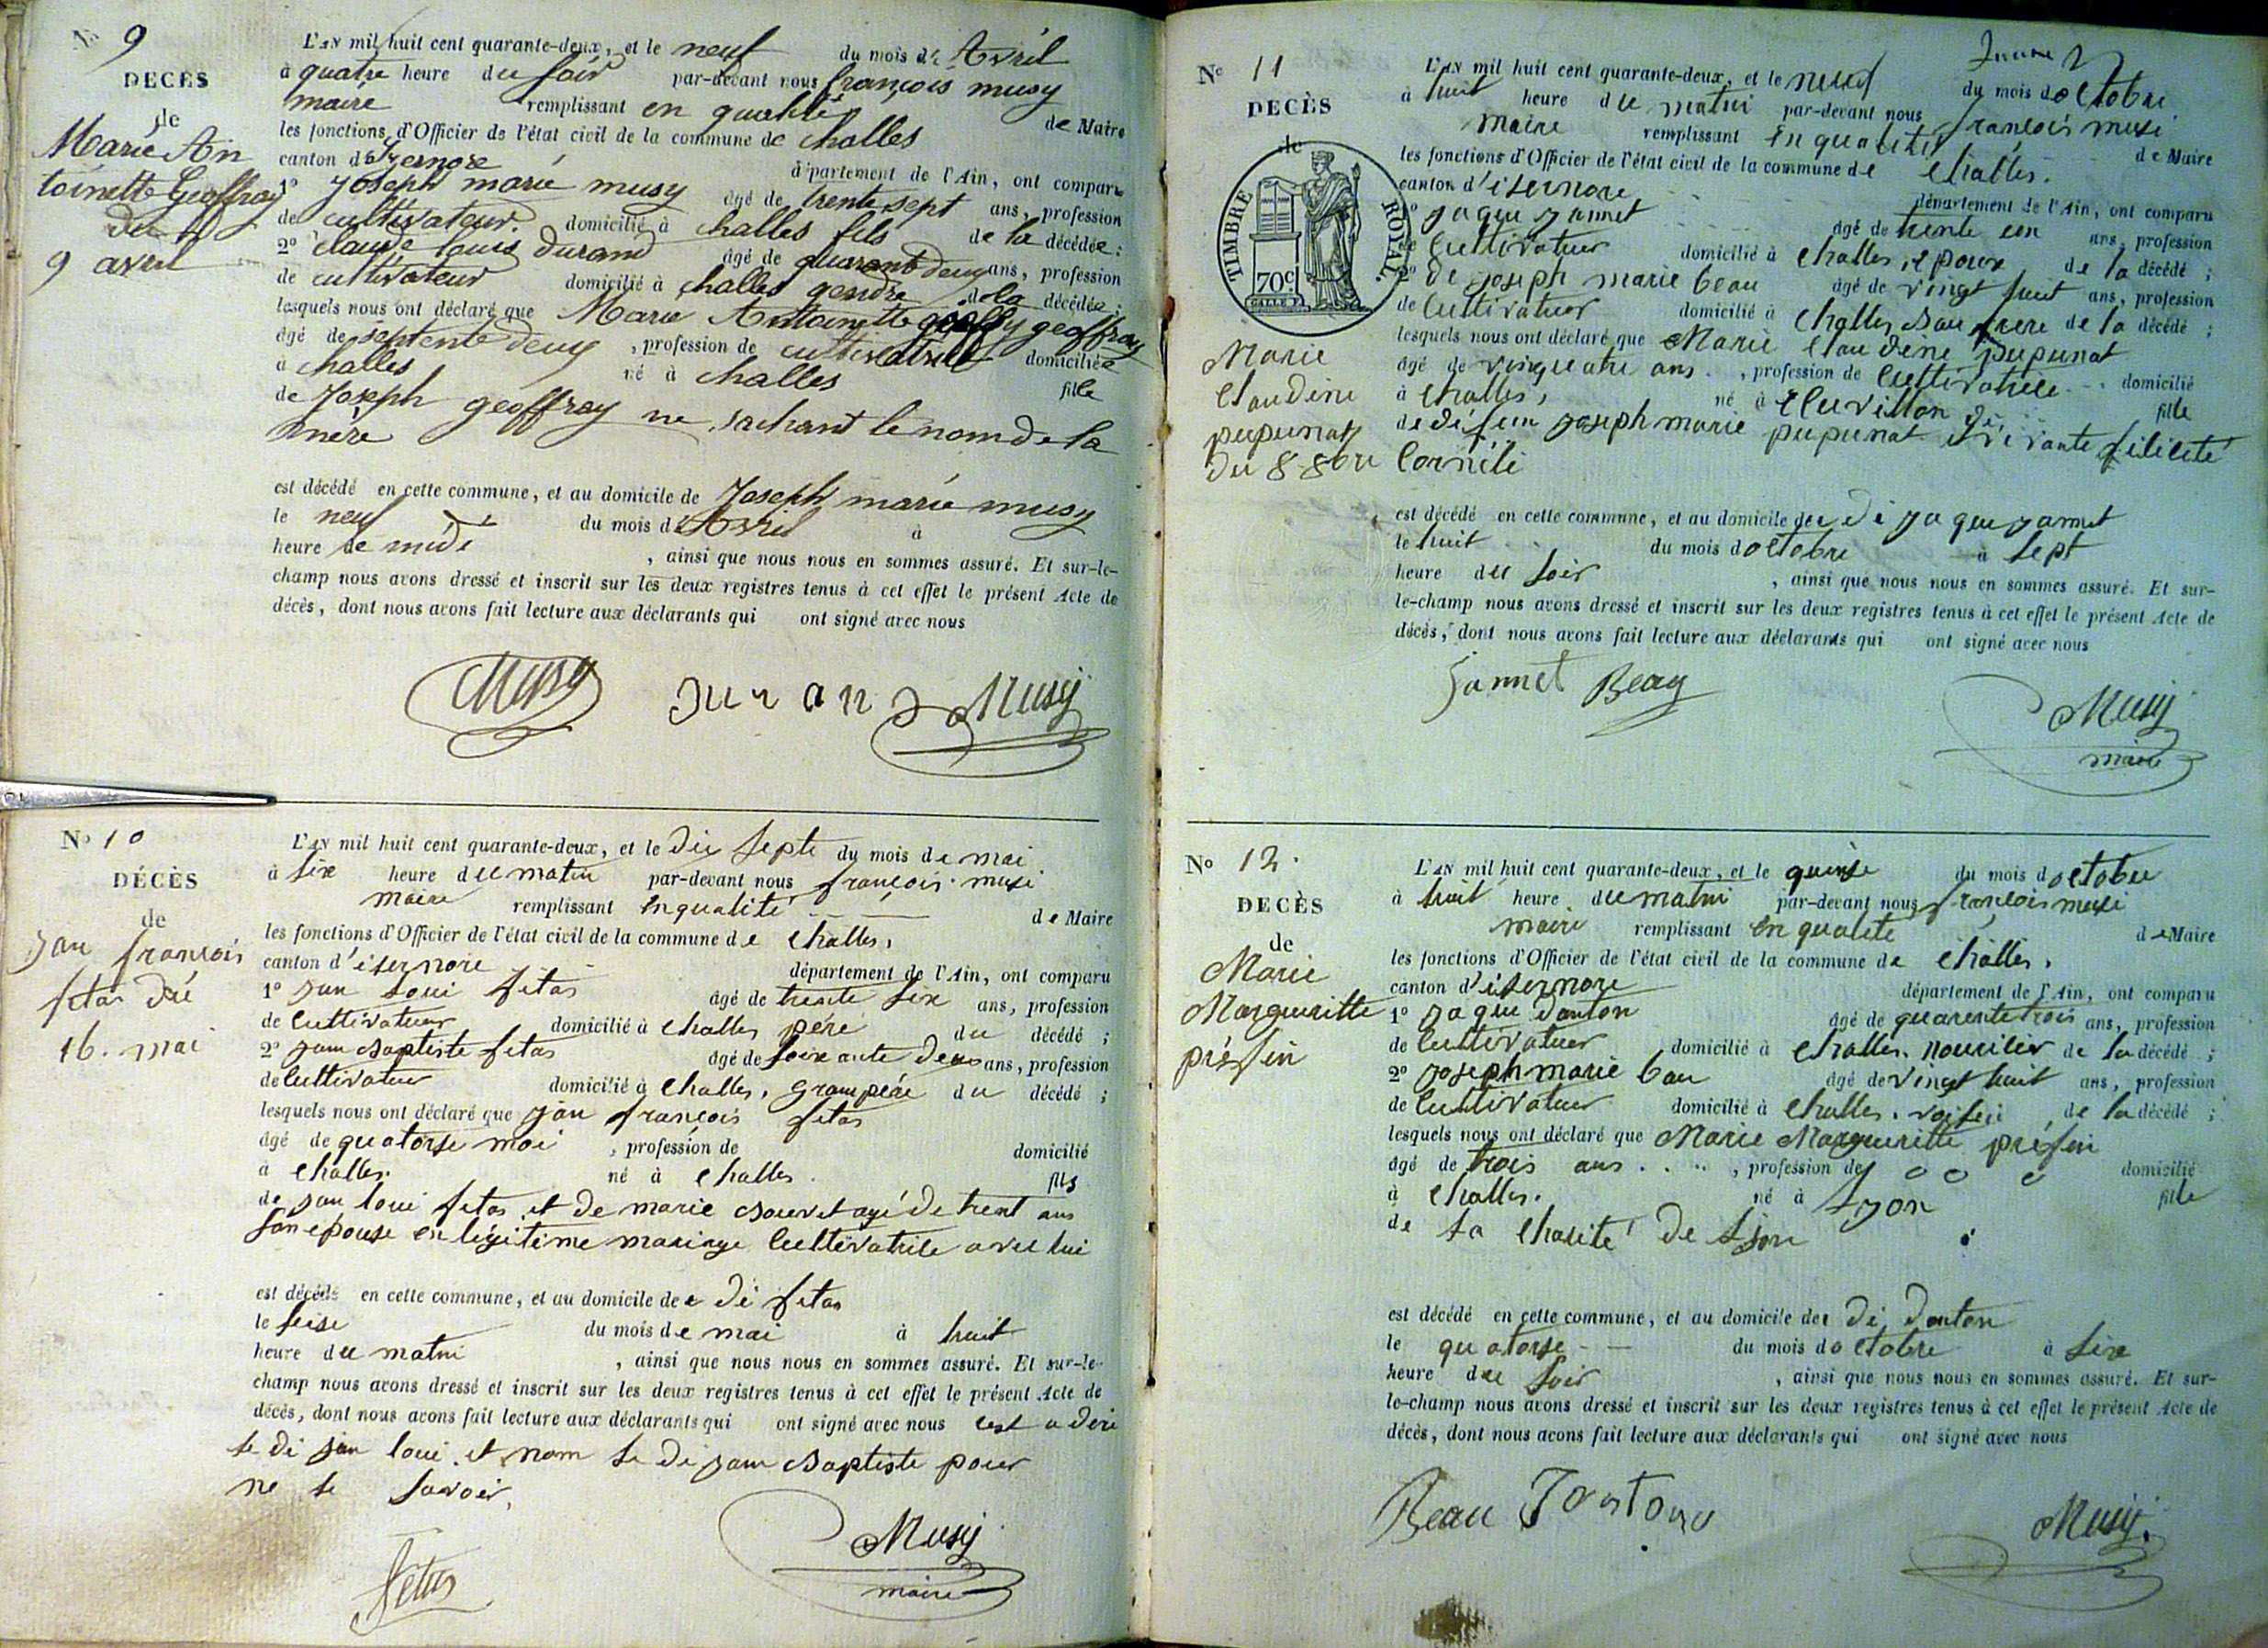 N° 9
DECÈS
de
Marie An
toinette Geoffray
du
9 avril
L'AN mil huit cent quarante-deux, et le neuf du mois d'Avril
à quatre heure du soir par-devant nous françois musy
maire remplissant en qualité de Maire
les fonctions d'Officier de l'état civil de la commune de challes
canton d'Izernore département de l'Ain, ont comparu
1° Joseph marie musy âgé de trente sept ans, profession
de cultivateur. domicilié à challes fils de la décédée :
2° claude louis durand âgé de quarant deux ans, profession
de cultivateur domicilié à challes gendre de la décédée ;
lesquels nous ont déclaré que Marie Antoinette geoffray
âgé de septente deux , profession de cultivatrice domiciliée
à challes né à challes fille
de Joseph geoffray ne sachant le nom de la
mère
est décédé en cette commune, et au domicile de Joseph marie musy
le neuf du mois d'Avril à
heure de midi , ainsi que nous nous en sommes assuré. Et sur-le-
champ nous avons dressé et inscrit sur les deux registres tenus à cet effet le présent Acte de
décès, dont nous avons fait lecture aux déclarants qui ont signé avec nous
Musy Durand Musy
N° 10
DÉCÈS
de
jan françois
fetas du
16. mai
L'AN mil huit cent quarante-deux, et le dix septe du mois de mai
à six heure du matin par-devant nous françois musi
maire remplissant en qualité de Maire
les fonctions d'Officier de l'état civil de la commune de challes,
canton d'isernore département de l'Ain, ont comparu
1° jan loui fetas âgé de trente six ans, profession
de cultivateur domicilié à challes père du décédé ;
2° jam baptiste fetas âgé de soixante deux ans, profession
de cultivateur domicilié à challes, grampère du décédé ;
lesquels nous ont déclaré que jan françois fetas
âgé de quatorse moi , profession de domicilié
à challes. né à challes. fils
de jan loui fetas et de marie bouvet agé de trent ans
son epouse en légitime mariage cultivatrice avec lui
est décédé en cette commune, et au domicile de e di fetas
le seise du mois de mai à huit
heure du matin , ainsi que nous nous en sommes assuré. Et sur-le-
champ nous avons dressé et inscrit sur les deux registres tenus à cet effet le présent Acte de
décès, dont nous avons fait lecture aux déclarants qui ont signé avec nous cest a dire
le di jan loui et nom le di jam baptiste pour
ne le savoir,
fetas
Musy
maire
N° 11
DECÈS
de
TIMBRE ROYAL
70c
Marie
Claudine
pupunat
du 8 8bre
L'AN mil huit cent quarante-deux, et le neuf du mois doctobre
à huit heure du matin par-devant nous françois musi
maire remplissant en qualité de Maire
les fonctions d'Officier de l'état civil de la commune de challes.
canton d'isernore département de l'Ain, ont comparu
1° jaque jannet âgé de trente un ans, profession
de cultivateur domicilié à challes, epoux de la décédé ;
2° de joseph marie beau âgé de vingt huit ans, profession
de cultivateur domicilié à challes bau frere de la décédé ;
lesquels nous ont déclaré que Marie claudine pupunat
âgé de vinquatre ans. , profession de cultivatrice domicilié
à challes, né à fille
de défun joseph marie pupunat vivante félicité
Cornéli
est décédé en cette commune, et au domicile de e di jaque jannet
le huit du mois doctobre à sept
heure du soir , ainsi que nous nous en sommes assuré. Et sur-
le-champ nous avons dressé et inscrit sur les deux registres tenus à cet effet le présent Acte de
décès, dont nous avons fait lecture aux déclarants qui ont signé avec nous
Jannet Beau
Musy
maire
N° 12.
DECÈS
de
Marie
Margueritte
présfin
L'AN mil huit cent quarante-deux, et le quinse du mois doctobre
à huit heure du matin par-devant nous françois musi
maire remplissant en qualité de Maire
les fonctions d'Officier de l'état civil de la commune de challes,
canton d'isernore département de l'Ain, ont comparu
1° jaque danton âgé de quarente trois ans, profession
de cultivateur domicilié à challes. nouricier de la décédé ;
2° joseph marie bau âgé de vingt huit ans, profession
de cultivateur domicilié à challes. voisin de la décédé ;
lesquels nous ont déclaré que Marie Margueritte présfin
âgé de trois ans . . . , profession de domicilié
à challes. né à Lyon fille
de La charité de Lion
est décédé en cette commune, et au domicile de e di danton
le quatorse du mois doctobre à six
heure du soir , ainsi que nous nous en sommes assuré. Et sur-
le-champ nous avons dressé et inscrit sur les deux registres tenus à cet effet le présent Acte de
décès, dont nous avons fait lecture aux déclarants qui ont signé avec nous
Beau
Musy.